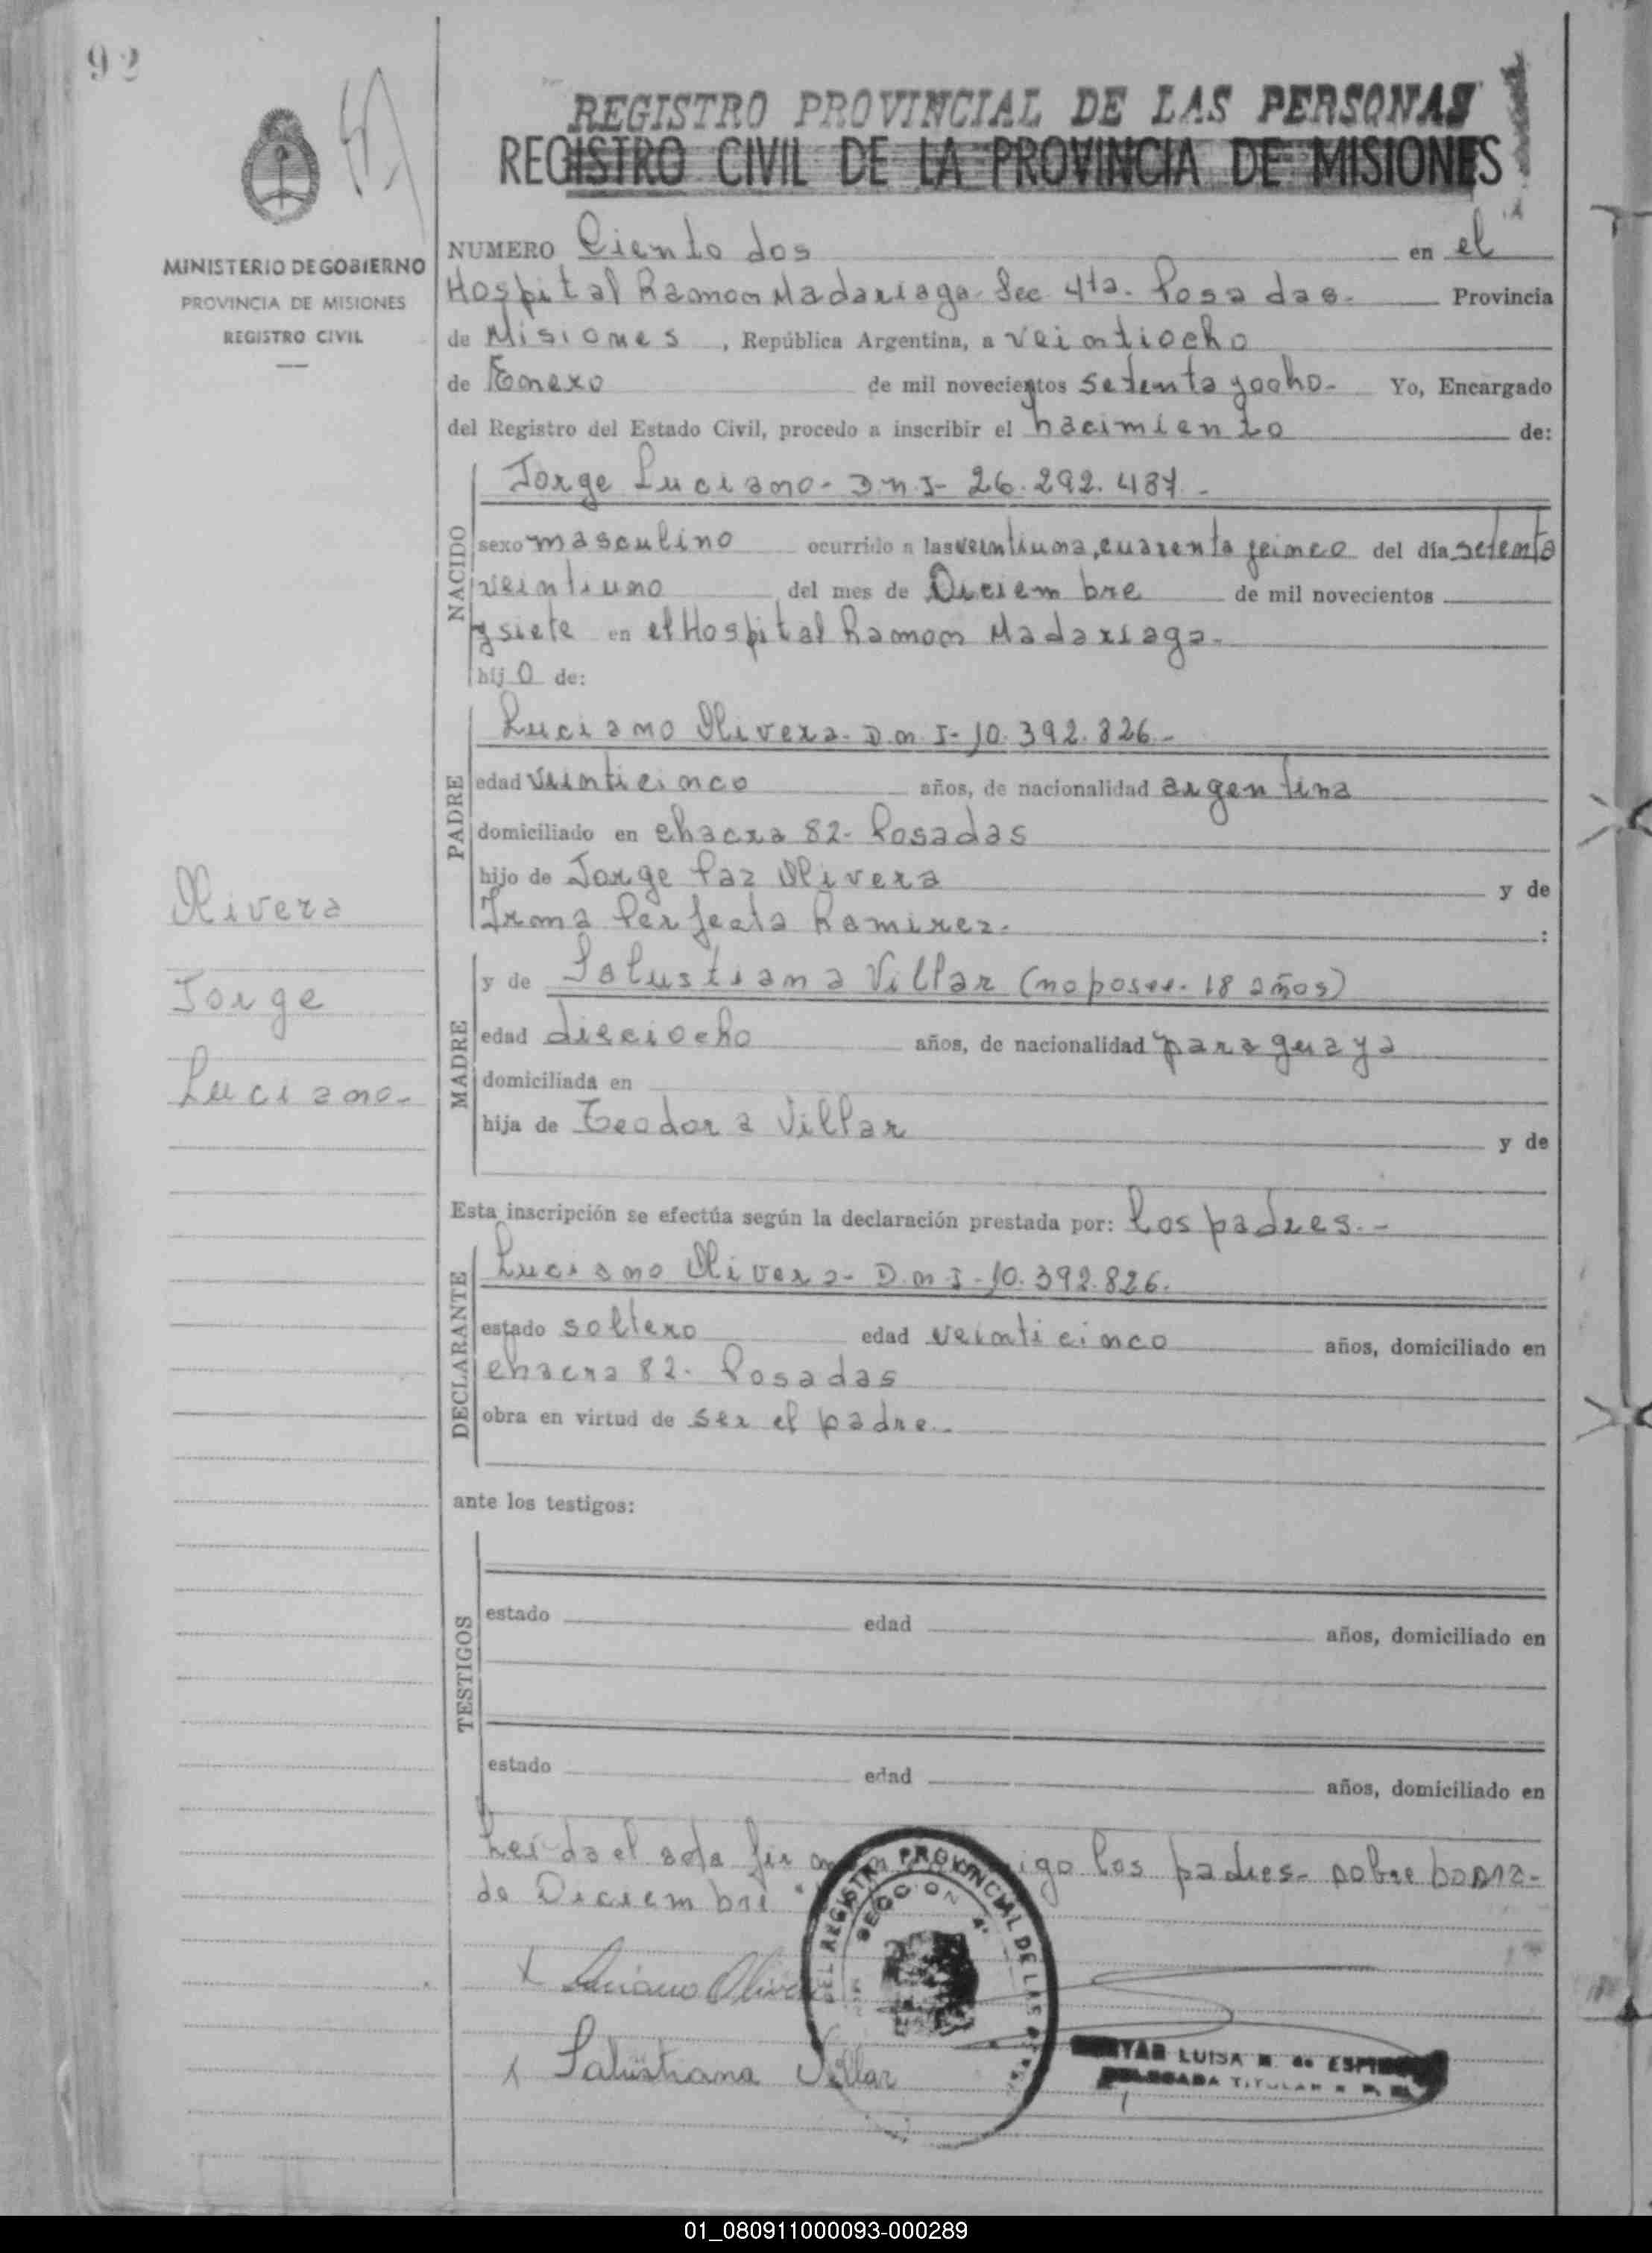 92
REGISTRO PROVINCIAL DE LAS PERSONAS
REGISTRO CIVIL DE LA PROVINCIA DE MISIONES
MINISTERIO DE GOBIERNO
PROVINCIA DE MISIONES
REGISTRO CIVIL
NUMERO Ciento dos en el
Hospital Ramon Madariaga Sec 4ta. Posadas. Provincia
de Misiones, República Argentina, a veintiocho
de Enero de mil novecientos setenta y ocho- Yo, Encargado
del Registro del Estado Civil, procedo a inscribir el nacimiento de:
Jorge Luciano- D.N.I- 26.292.487.-
NACIDO
sexo masculino ocurrido a las veintiuna, cuarenta y cinco del día setenta
veintiuno del mes de Diciembre de mil novecientos
y siete en el Hospital Ramon Madariaga.
hijo de:
PADRE
Luciano Olivera- D.n.I- 10.392.826.-
edad veinticinco años, de nacionalidad argentina
domiciliado en chacra 82- Posadas
hijo de Jorge Paz Olivera y de
Irma Perfecta Ramirez. :
Olivera
Jorge
Luciano-
MADRE
y de Salustiana Villar (no posee- 18 años)
edad dieciocho años, de nacionalidad paraguaya
domiciliada en
hija de Teodora Villar y de
Esta inscripción se efectúa según la declaración prestada por: los padres.-
DECLARANTE
Luciano Olivera- D.n.I-10.392.826.
estado soltero edad veinticinco años, domiciliado en
chacra 82- Posadas
obra en virtud de ser el padre.
ante los testigos:
TESTIGOS
estado edad años, domiciliado en
estado edad años, domiciliado en
Leída el acta los padres- sobre borra-
do Diciembre
DEL REGISTRO PROVINCIAL DE LAS
SECCION 4ª
x Luciano Olivera
x Salustiana Villar
LUISA M. de
DELEGADA TITULAR
01_080911000093-000289